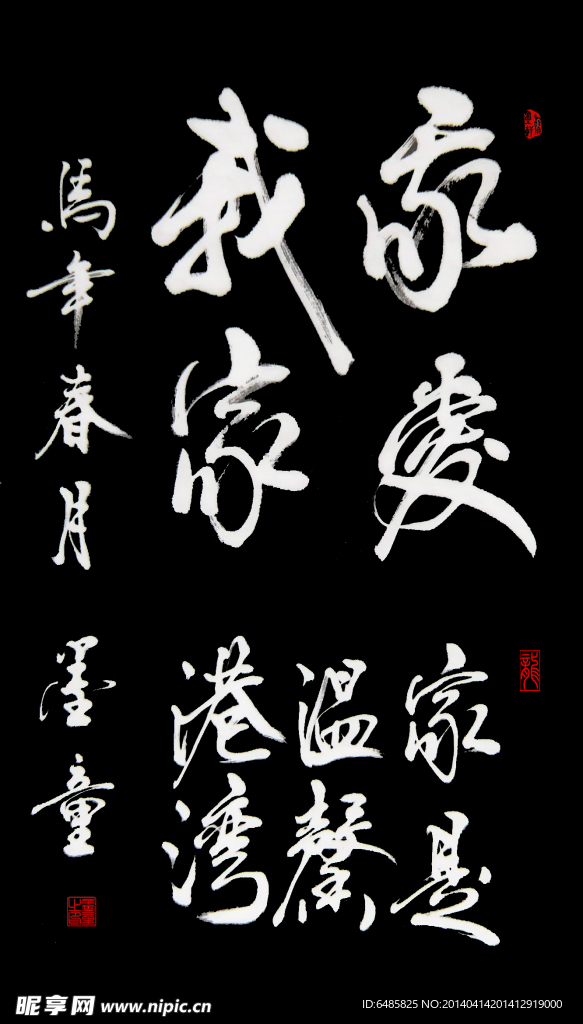 家愛
我家
家是
温馨
港湾
馬年春月
墨童
龍
昵享网 www.nipic.cn
ID:6485825 NO:20140414201412919000